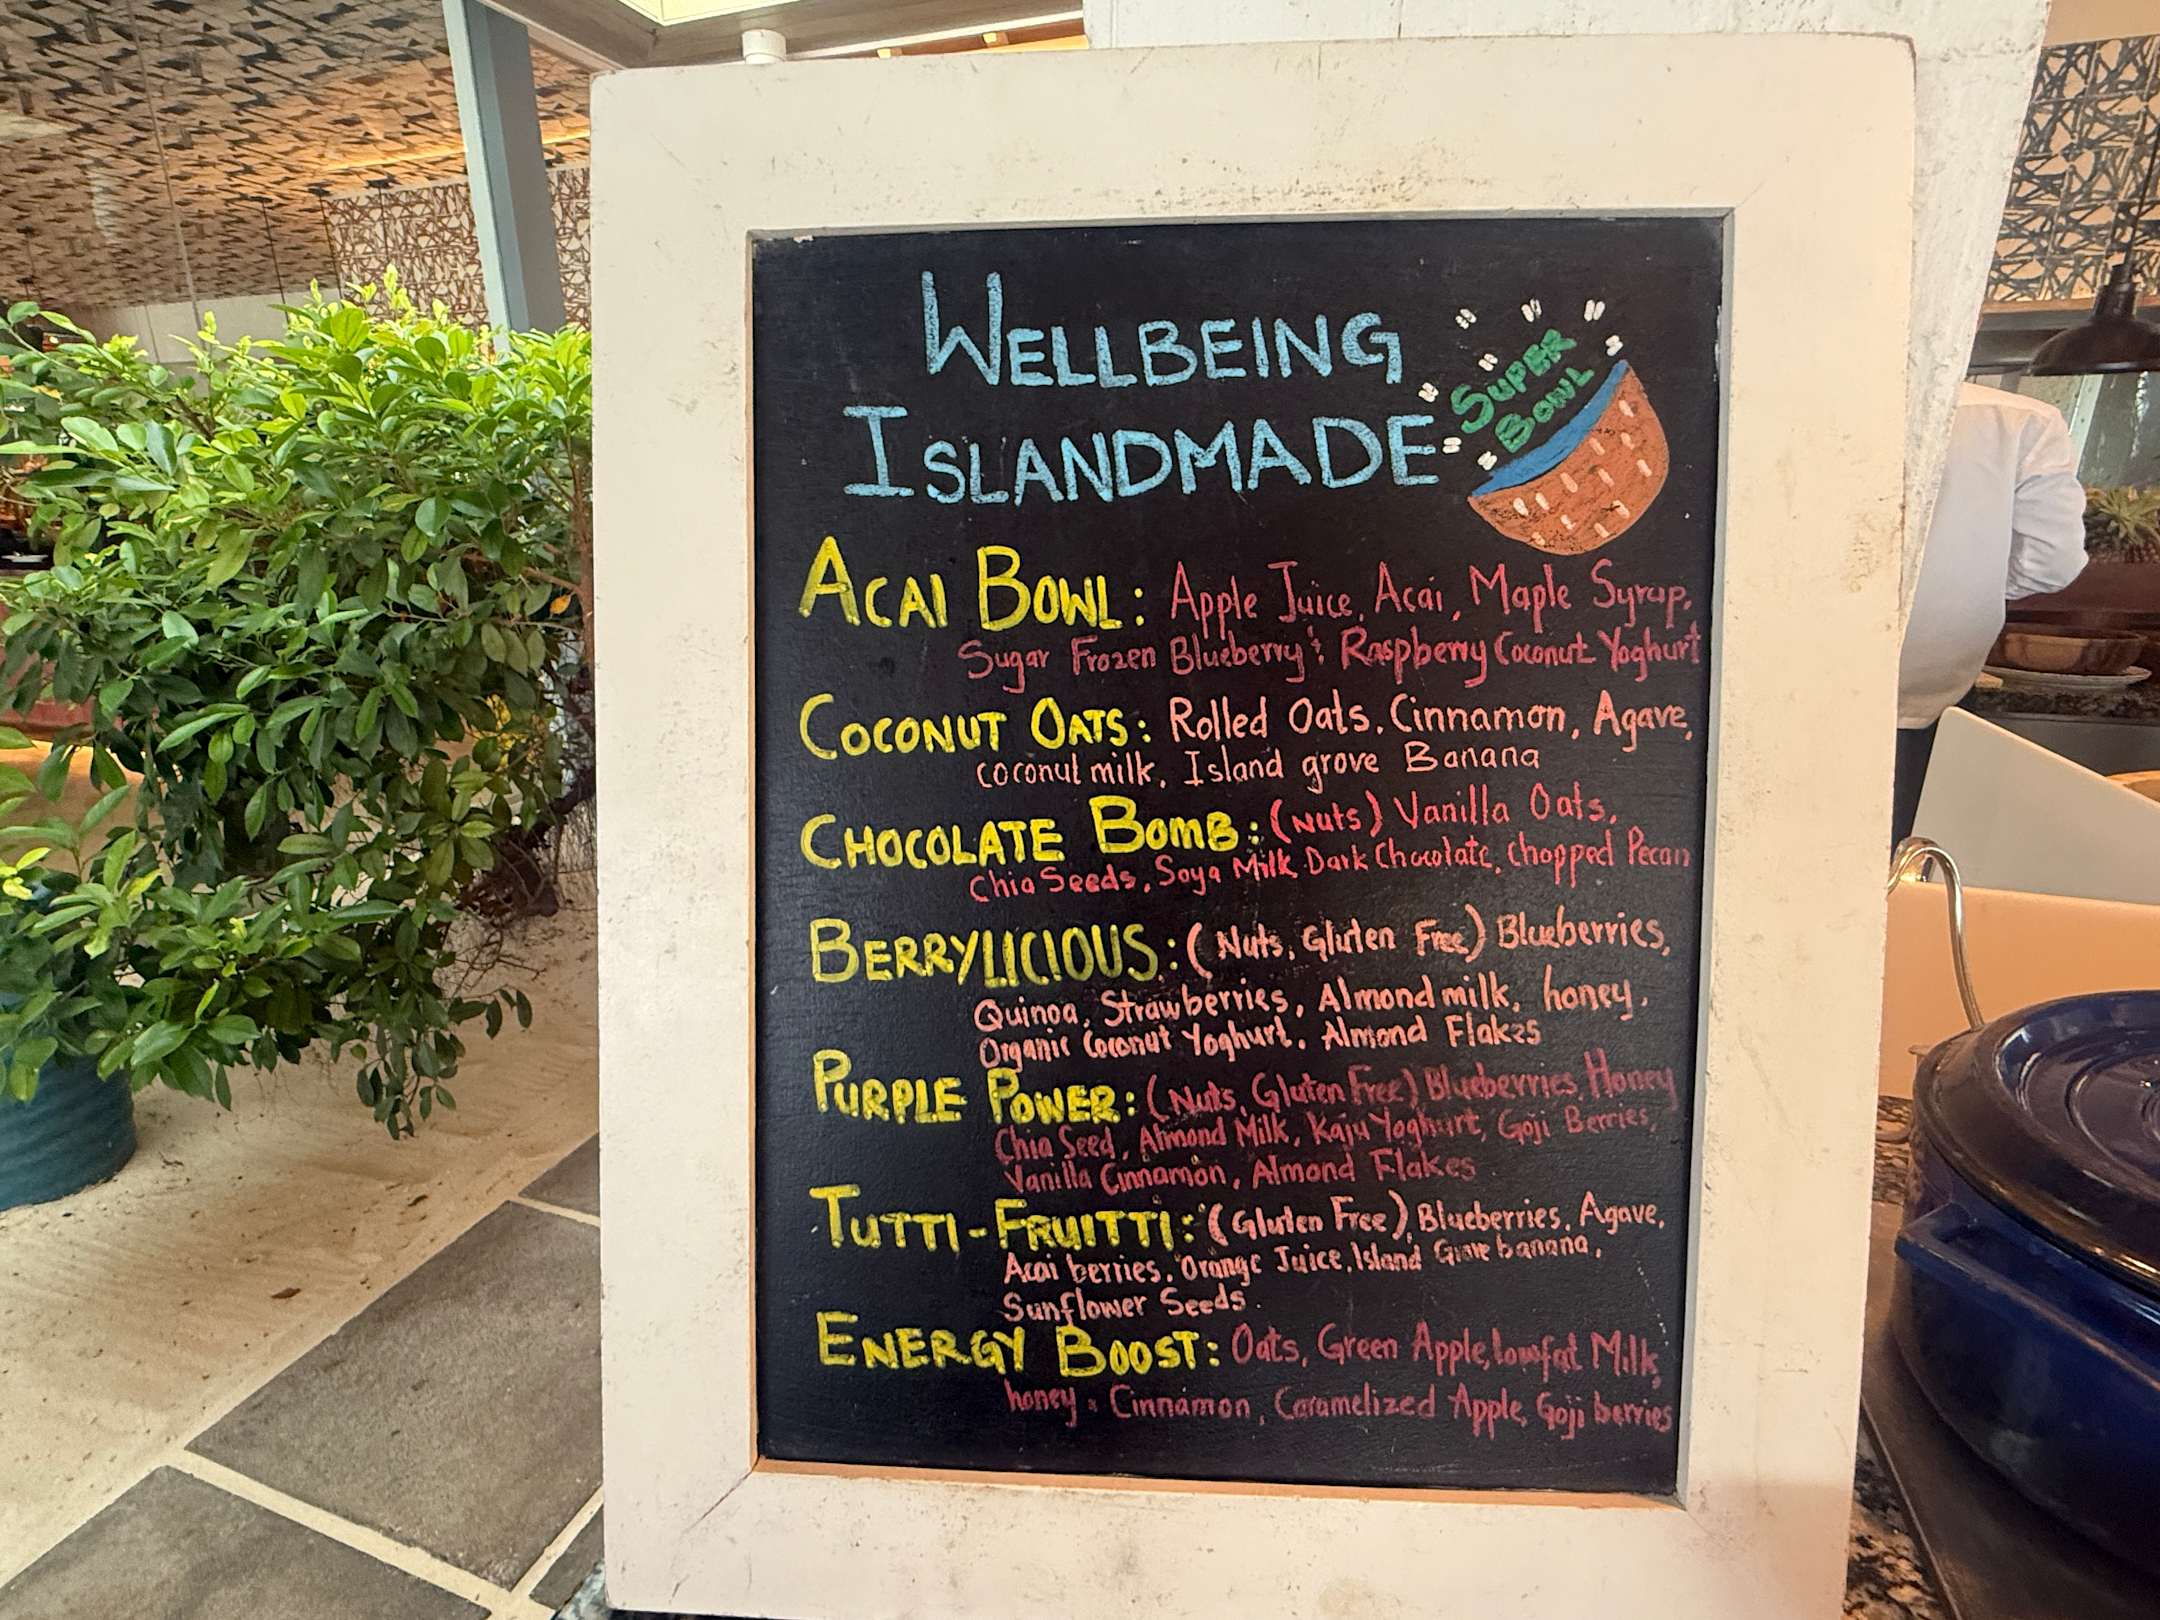 WELLBEING
ISLANDMADE
SUPER
BOWL
ACAI BOWL: Apple Juice, Acai, Maple Syrup,
Sugar Frozen Blueberry & Raspberry Coconut Yoghurt
COCONUT OATS: Rolled Oats, Cinnamon, Agave,
coconut milk, Island grove Banana
CHOCOLATE BOMB: (Nuts) Vanilla Oats,
Chia Seeds, Soya Milk, Dark Chocolate, Chopped Pecan
BERRYLICIOUS: (Nuts, Gluten Free) Blueberries,
Quinoa, Strawberries, Almond milk, honey,
Organic Coconut Yoghurt, Almond Flakes
PURPLE POWER: (Nuts, Gluten Free) Blueberries, Honey
Chia Seed, Almond Milk, Kaju Yoghurt, Goji Berries,
Vanilla Cinnamon, Almond Flakes
TUTTI-FRUITTI: (Gluten Free), Blueberries, Agave,
Acai berries, Orange Juice, Island Grove banana,
Sunflower Seeds.
ENERGY BOOST: Oats, Green Apple, lowfat Milk,
honey, Cinnamon, Caramelized Apple, Goji berries